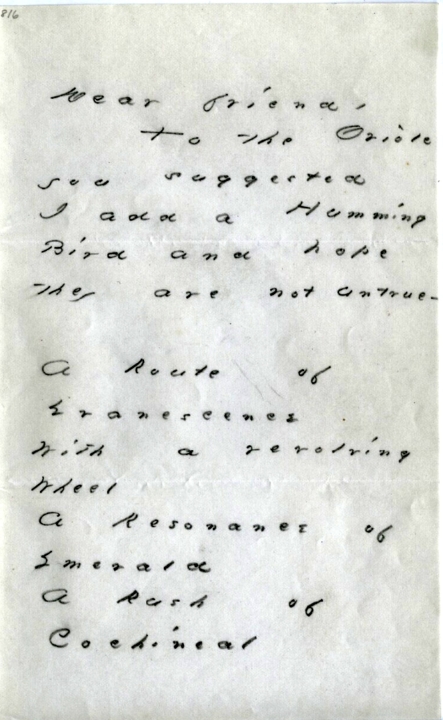 816
Dear friend,
To the Oriole
you suggested
I add a Humming
Bird and hope
they are not untrue-
A Route of
Evanescence
With a revolving
Wheel
A Resonance of
Emerald
A Rush of
Cochineal